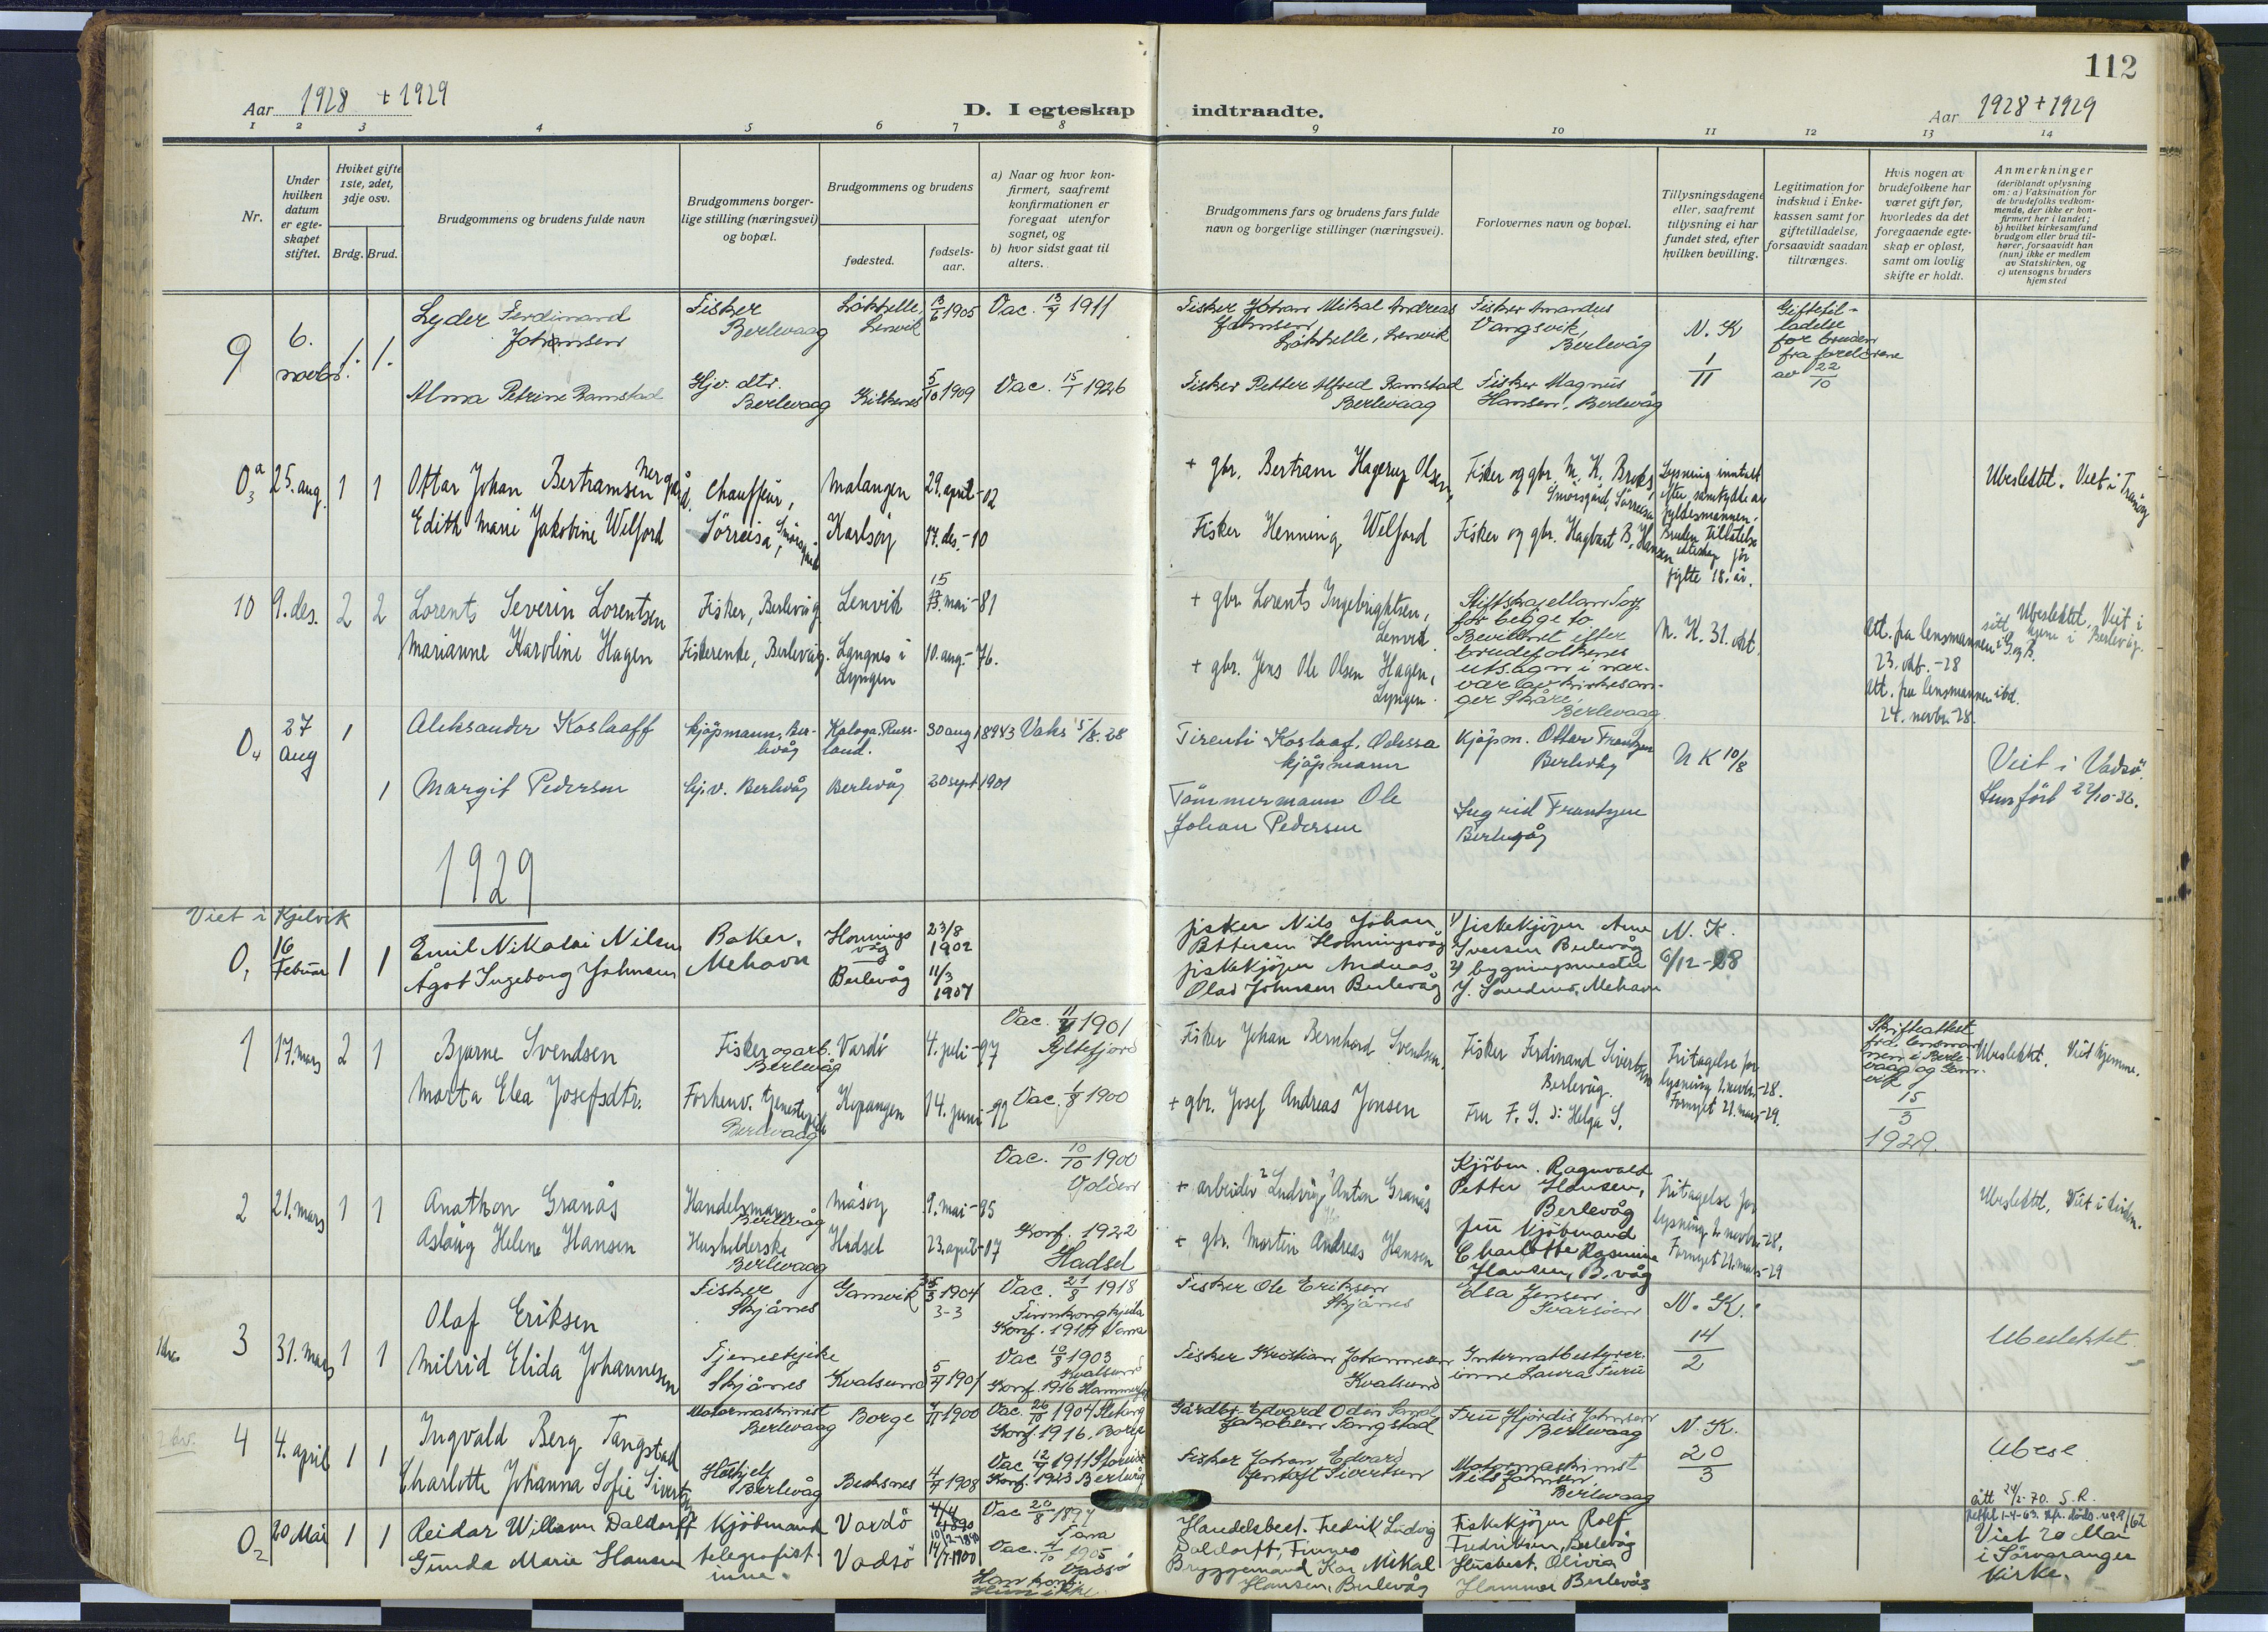 112
Aar 1928 + 1929
D. I egteskap indtraadte.
Aar 1928 + 1929
1 2 3 4 5 6 7 8 9 10 11 12 13 14
Nr.
Under hvilken datum er egteskapet stiftet.
Hviket gifte 1ste, 2det, 3dje osv.
Brdg. Brud.
Brudgommens og brudens fulde navn
Brudgommens borgerlige stilling (næringsvei) og bopæl.
Brudgommens og brudens
fødested.
fødselsaar.
a) Naar og hvor konfirmert, saafremt konfirmationen er foregaat utenfor sognet, og
b) hvor sidst gaat til alters.
Brudgommens fars og brudens fars fulde navn og borgerlige stillinger (næringsvei).
Forlovernes navn og bopæl.
Tillysningsdagene eller, saafremt tillysning ei har fundet sted, efter hvilken bevilling.
Legitimation for indskud i Enkekassen samt for giftetilladelse, forsaavidt saadan tiltrænges.
Hvis nogen av brudefolkene har været gift før, hvorledes da det foregaaende egteskap er opløst, samt om lovlig skifte er holdt.
Anmerkninger (deriblandt oplysning om: a) Vaksination for de brudefolks vedkommende, der ikke er konfirmert her i landet; b) hvilket kirkesamfund brudgom eller brud tilhører, forsaavidt han (hun) ikke er medlem av Statskirken, og c) utensogns bruders hjemsted
9 6. novbr. 1. 1.
Lyder Ferdinand Johansen
Fisker Berlevaag
Løkkelle, Lenvik
13/6 1905
Vac. 13/9 1911
Fisker Johan Mikal Andreas Johnsen, Løkkelle, Lenvik
Fisker Amandus Vangsvik, Berlevåg
N. K 1/11
Giftetilladelse for bruden fra forældrene av 22/10
Alma Petrine Ramstad
Hjv. dtr. Berlevaag
Kirkenes
5/10 1909
Vac. 15/7 1926
Fisker Petter Alfred Ramstad Berlevaag
Fisker Magnus Hansen, Berlevåg
0 3 a 25. aug. 1 1
Ottar Johan Bertramsen Nergård.
Chauffeur,
Malangen
29. april -02
+ gbr. Bertram Hagerup Olsen,
Fisker og gbr. M. K. Broks, Smørsgård, Sörreisa
Lysning inntatt efter samtykke av fylkesmannen. Bruden tillatelse ekteskap før fylte 18. år.
Ubeslektet. Viet i Tranøy
Edith Marie Jakobine Welford
Sörreisa, Smørsgård
Karlsøy
17. des. -10
Fisker Henning Welford
Fisker og gbr. Hagbart B. Hansen
10 9. des. 2 2
Lorents Severin Lorentsen
Fisker, Berlevåg
Lenvik
15 mai -81
+ gbr. Lorents Ingebrigtsen, Lenvik.
Stiftskapellan Torp for begge to. Bevilliget efter brudefolkenes utsagn i nærvær av kirkesanger Skåre, Berlevaag
N. K. 31. okt.
Att. fra lensmannen i G. og B. 23. okt. -28
Att. fra lensmannen ibd. 24. novbr. 28.
Ubeslektet. Viet i sitt hjem i Berlevåg.
Marianne Karoline Hagen
Fiskerenke, Berlevåg.
Lyngnes i Lyngen
10. aug. -76.
+ gbr. Jens Ole Olsen Hagen, Lyngen.
0 4 27 aug 1
Aleksander Koslaoff
kjøpmann, Berlevåg
Kaloga. Russland.
30 aug 1894
Vaks 5/8. 28
Tirenti Koslaof, Odessa kjøpmann
Kjøpm. Ottar Frantzen Berlevåg
N K 10/8
Viet i Vadsø. Innført 22/10-32.
1 Margit Pedersen
Hj.v. Berlevåg
Berlevåg
20 sept 1901
Tömmermann Ole Johan Pedersen
Ingrid Frantzen Berlevåg
1929
Viet i Kjelvik
0 1 16 Febuar 1 1
Emil Nikolai Nilsen
Baker, Mehavn
Honningsvåg
23/8 1902
fisker Nils Johan Pettersen Honningsvåg
1) fiskekjöper Arne Iversen Berlevåg
N. K. 6/12-28
Ågot Ingeborg Johnsen
Berlevåg
11/3 1907
fiskekjöper Andreas Olai Johnsen Berlevåg
2) bygningsmester J. Sandmo, Mehavn
1 17. mars 2 1
Bjarne Svendsen
Fisker og arb. Berlevåg
Vardö
4. juli -97
Vac. 11/7 1901 Syltefjord
Fisker Johan Bernhard Svendsen,
Fisker Ferdinand Sivertsen Berlevåg.
Fritagelse for lysning 2. novbr. -28. Fornyet 21. mars -29.
Skifteattest fra lensmannen i Berlevaag og Gamvik 15/3 1929.
Ubeslektet. Viet hjemme.
Marta Elea Josefsdtr.
Forhenv. tjenestepike Berlevaag
Kopangen
14. juni -92
Vac. 1/8 1900
+ gbr. Josef Andreas Jonsen
Fru F. S. : Helga S.
2 21. mars 1 1
Anathon Granås
Handelsmann Berlevåg
Måsøy
9. mai -95
Vac. 10/10 1900 Volden
+ arbeider Ludvig Anton Granås
Kjöbm. Ragnvald Petter Hansen, Berlevåg
Fritagelse for lysning 2. novbr. -28. Fornyet 21. mars -29
Ubeslektet. Viet i kirken.
Aslaug Helene Hansen
Husholderske Berlevaag
Hadsel
23. april -07
Konf. 1922 Hadsel
+ gbr. Martin Andreas Hansen
fru kjöbmand Charlotte Rasmine Hansen, B.våg
3 31. mars 1 1
Olaf Eriksen
Fisker Skjånes
Gamvik
3/3 1904 3-3
Vac. 21/8 1918 Finnkongkjeila Konf. 1919 Tana
Fisker Ole Eriksen Skjånes
Elea Jensen Ivarsen
N. K. 14/2
Ubeslektet
Milrid Elida Johannesen
Tjenestepike Skjånes
Kvalsund
5/7 1901
Vac 10/8 1903 Kvalsund Konf. 1916 Hammerfest
Fisker Kristian Johannesen Kvalsund
Internatbestyrerinne Laura Turi
4 4. april 1 1
Ingvald Berg Tangstad
Motormaskinist Berlevaag
Borge
7/11 1900
Vac. 26/10 1904 Konf. 1916. Borge
Gårdbr Edvard Odin Jakobsen Tangstad
Fru Hjördis Johnsen Berlevaag
N. K. 20/3
Ubesl.
Charlotte Johanna Sofie Sivertsen
Hushjelp Berlevåg
4/7 1908
Vac 12/9 1911 Konf. 1923 Berlevåg
Fisker Johan Edvard Sivertsen
Motormaskinist Nils Johnsen Berlevaag
0 2 20 Mai 1 1
Reidar William Daldorff
Kjöbmand
Vardö
Vac 20/8 1897 Tana
Handelsbest. Fredrik Ludvig Daldorff, Finnes
Fiskekjöper Rolf Fredriksen, Berlevåg
att 24/2-70. S. R.
Viet 20 Mai i Sörvaranger Kirke.
Gunda Marie Hansen
telegrafistinne.
Vadsö
14/7 1900
Vac. 4/10 1905 Vadsö
Han konf. Hun ikke
Bryggemand Kar Mikal Hansen, Berlevåg
Husbest. Olivia Hammer Berlevåg